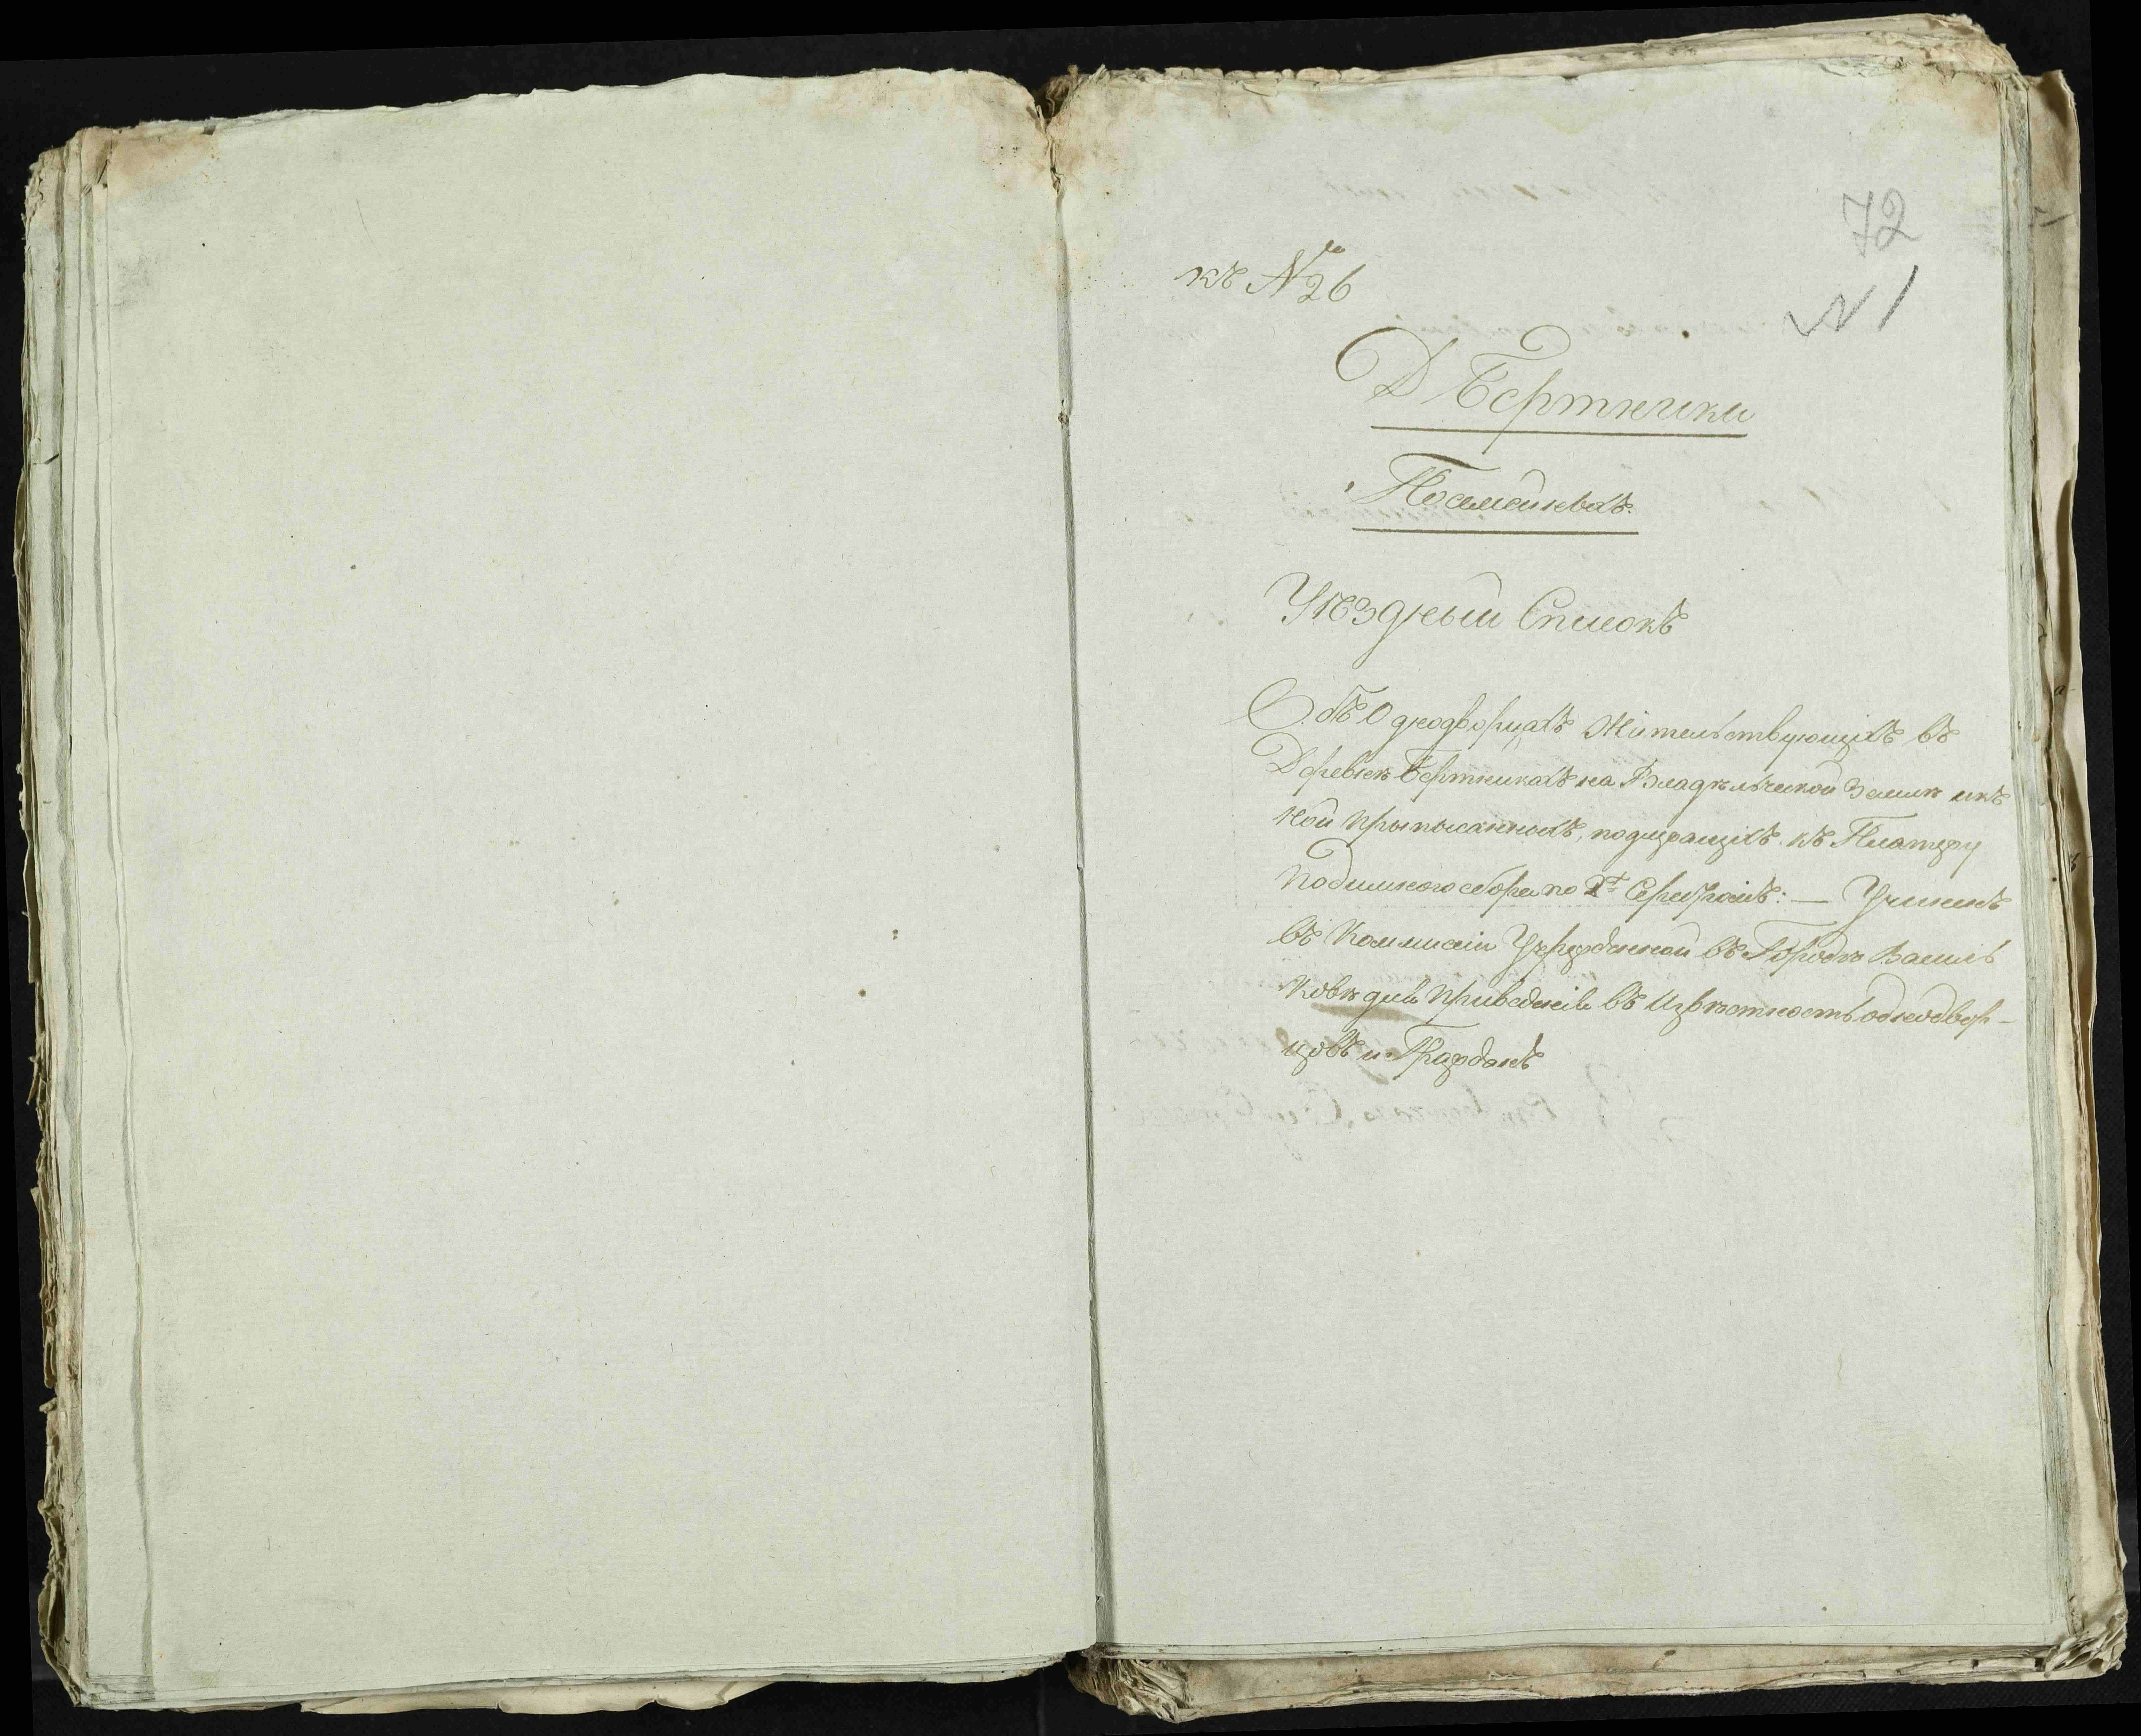 72
къ №26
N 1
Д Бертники
Посемейныхъ.
Уѣздный Списокъ
Объ Однодворцахъ Жительствующихъ въ
Деревнѣ Бертникахъ на Владѣльческой Землѣ и къ
ной Прыписанныхъ, подлежащихъ къ Платежу
Подымного сбора по Серебромъ: — Учиненъ
въ Коммисіи Учрежденной въ Городѣ Василь
ковѣ для Приведенія въ Извѣстность однодвор-
цовъ и Гражданъ